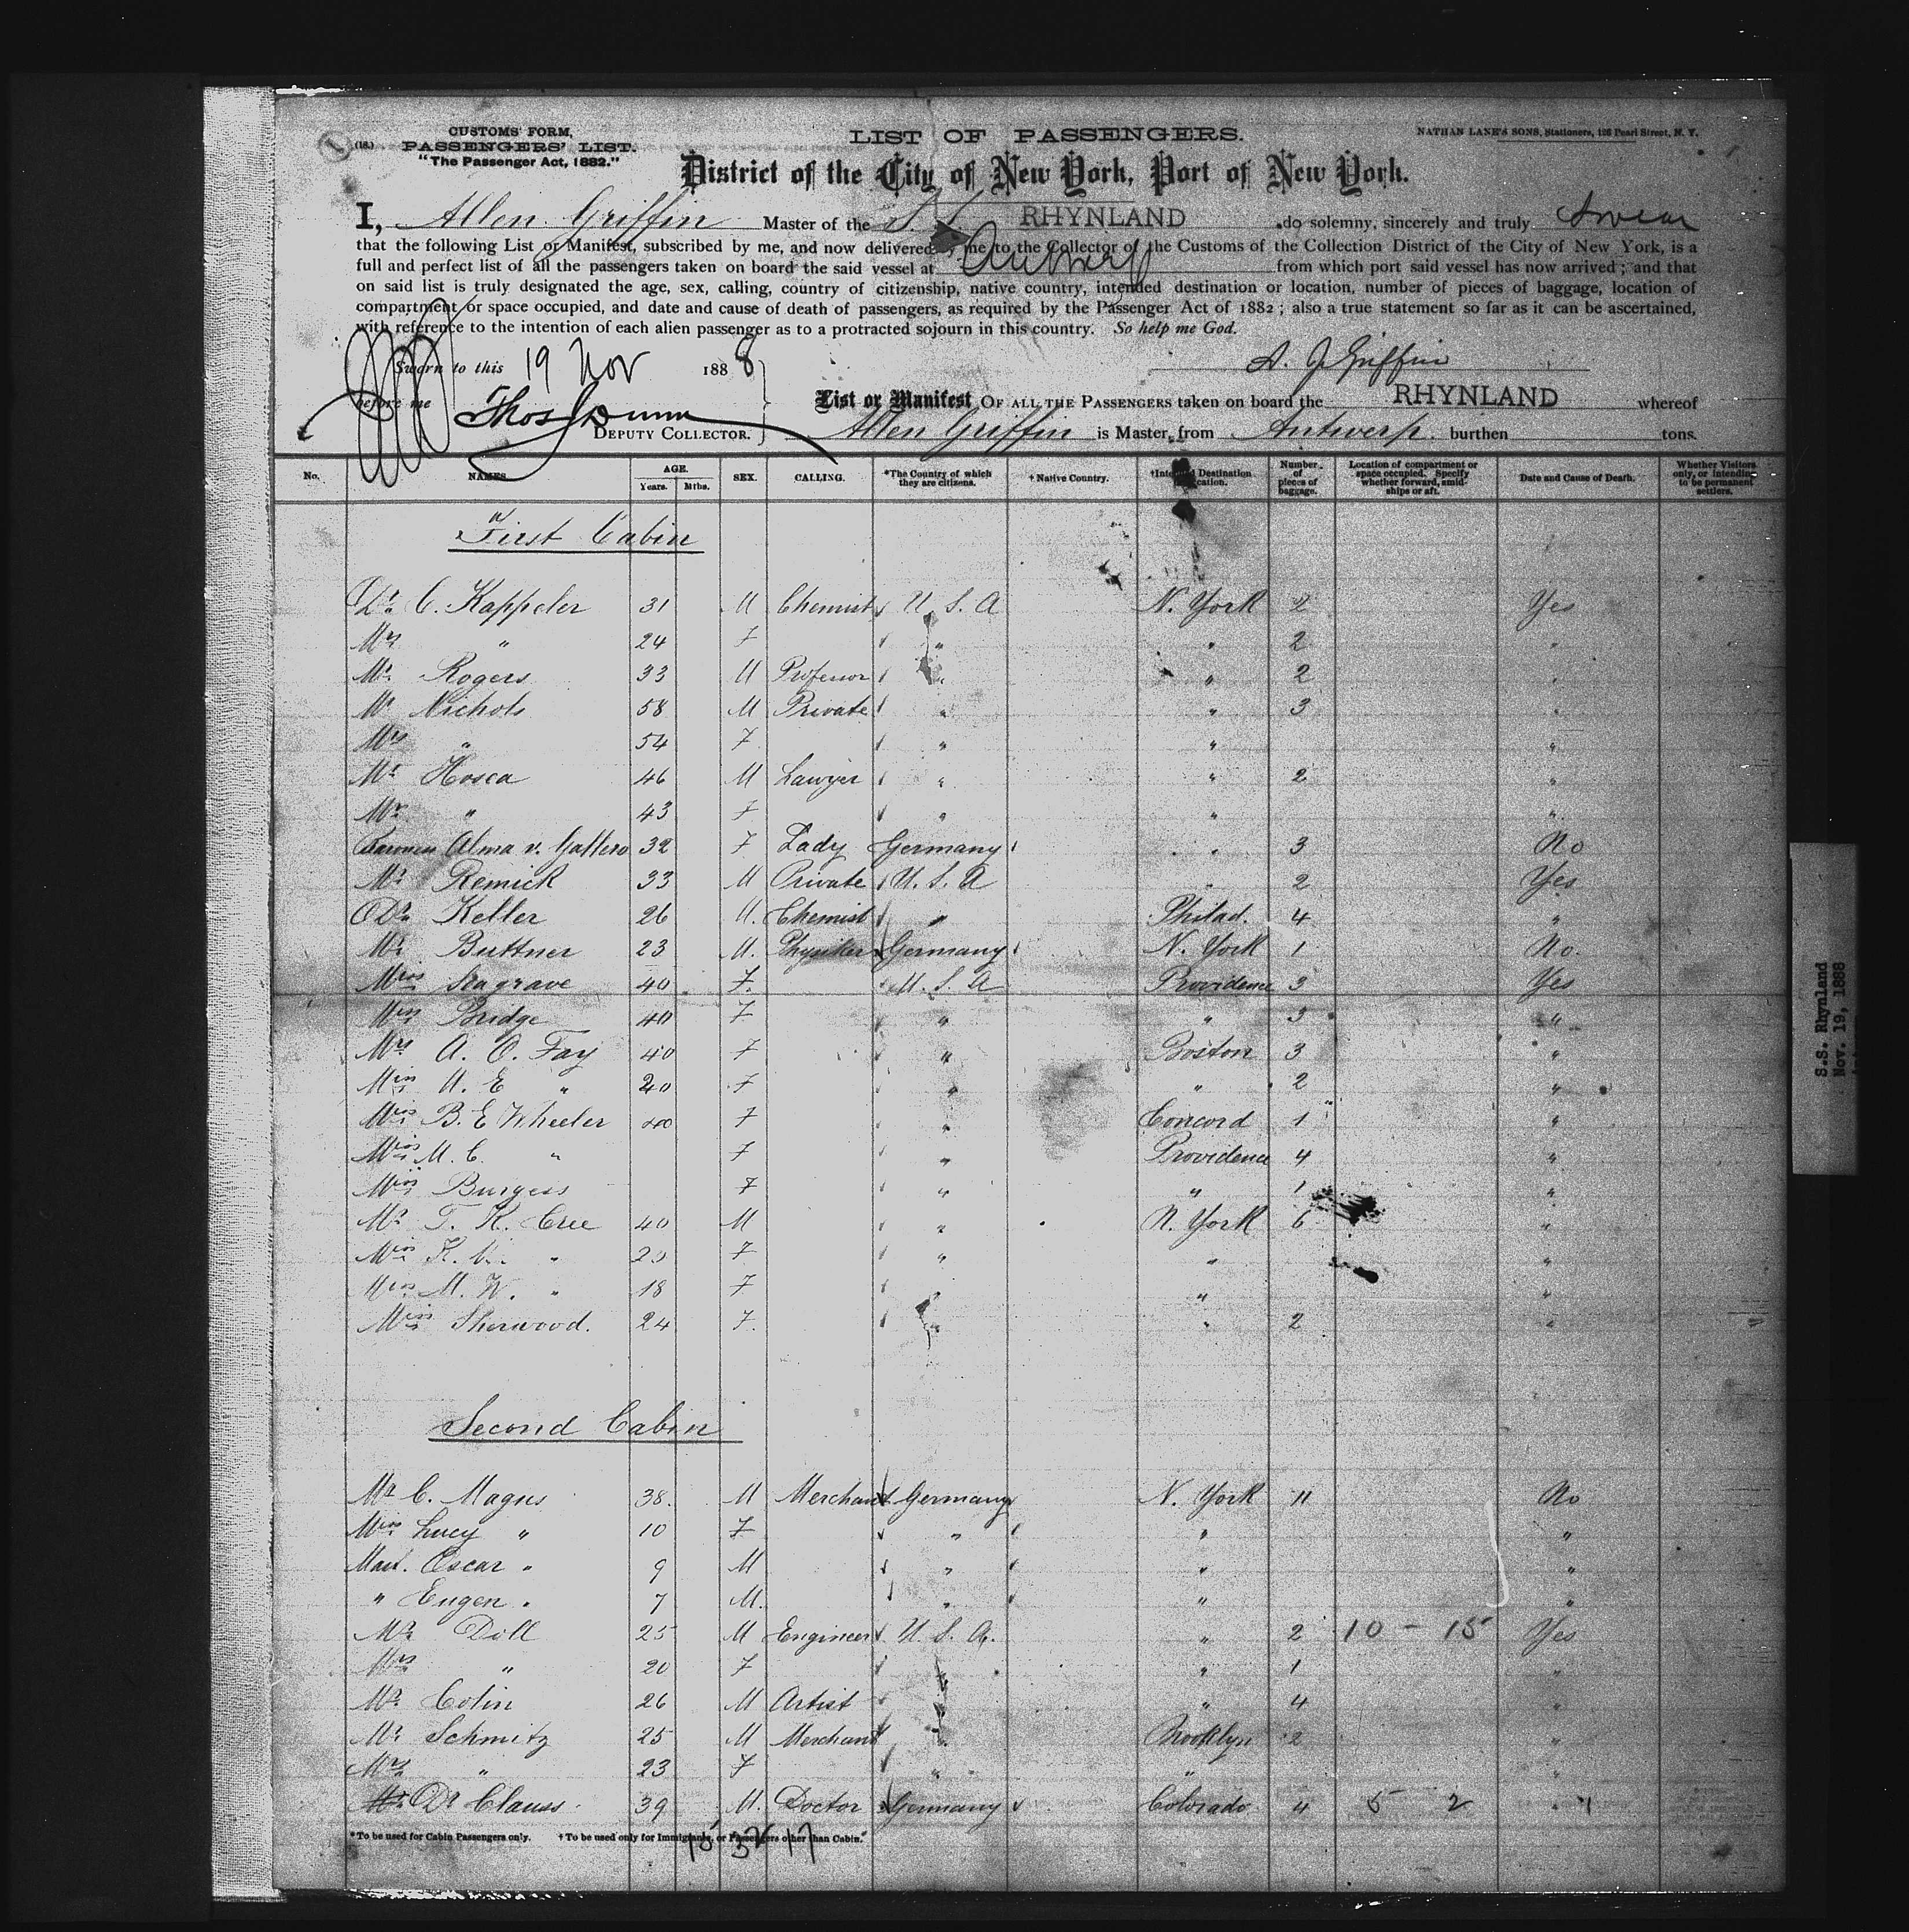 (18.)
CUSTOMS' FORM,
PASSENGERS' LIST.
"The Passenger Act, 1882."
LIST OF PASSENGERS.
NATHAN LANE'S SONS, Stationers, 126 Pearl Street, N. Y.
District of the City of New York, Port of New York.
I, Allen Griffin Master of the S. S. RHYNLAND do solemny, sincerely and truly swear
that the following List or Manifest, subscribed by me, and now delivered by me to the Collector of the Customs of the Collection District of the City of New York, is a
full and perfect list of all the passengers taken on board the said vessel at Antwerp from which port said vessel has now arrived; and that
on said list is truly designated the age, sex, calling, country of citizenship, native country, intended destination or location, number of pieces of baggage, location of
compartment or space occupied, and date and cause of death of passengers, as required by the Passenger Act of 1882; also a true statement so far as it can be ascertained,
with reference to the intention of each alien passenger as to a protracted sojourn in this country. So help me God.
Sworn to this 19 Nov 1888
A. J. Griffin
before me Thos Dunn
DEPUTY COLLECTOR.
List or Manifest OF ALL THE PASSENGERS taken on board the RHYNLAND whereof
Allen Griffin is Master, from Antwerp burthen tons.
No. NAMES AGE. Years. Mths. SEX. CALLING. *The Country of which they are citizens. †Native Country. †Intended Destination or Location. Number of pieces of baggage. Location of compartment or space occupied. Specify whether forward, amidships or aft. Date and Cause of Death. Whether Visitors only, or intending to be permanent settlers.
First Cabin
Dr. C. Kappeler 31 M Chemist U. S. A N. York 2 Yes
Mrs " 24 F " " 2 "
Mr. Rogers 33 M Professor " " 2 "
Mr Nichols 58 M Private " " 3 "
Mrs " 54 F " " "
Mr Hosea 46 M Lawyer " " 2 "
Mrs " 43 F " " "
Alma v. 32 F Lady Germany " 3 No
Mr Remick 33 M Private U. S. A " 2 Yes
Dr. Keller 26 M. Chemist " Philad. 4 "
Mr Buttner 23 M. Physiker Germany N. York 1 No.
Miss Seagrave 40 F. U. S. A Providence 3 Yes
Miss Bridge 40 F " " 3 "
Mrs A. O. Fay 40 F " Boston 3 "
Miss U. E " 20 F " " 2 "
Miss B. E Wheeler 40 F " Concord 1 "
Miss M. C. " F " Providence 4 "
Miss Burgess F " " 1 "
Mr T. K. Cree 40 M " N. York 6 "
Miss " F " " "
Miss M. W. " 18 F " " "
Miss Sherwood. 24 F. " " 2 "
Second Cabin
Mr C. Magus 38. M Merchant Germany N. York 11 No
Miss Lucy " 10 F " " "
Mast. Oscar " 9 M " " "
" Eugen " 7 M. " " "
Mr. Doll 25 M Engineer U. S. A. " 2 10 - 15 Yes
Mrs " 20 F " " 1 "
Mr. Colin 26 M Artist " " 4 "
Mr Schmitz 25 M Merchant " Brooklyn 2 "
Mrs " 23 F " " "
Dr Clauss 39 M. Doctor Germany Colorado 4 5 2 "
*To be used for Cabin Passengers only. †To be used only for Immigrants, or Passengers other than Cabin.
S.S. Rhynland
Nov. 19, 1888